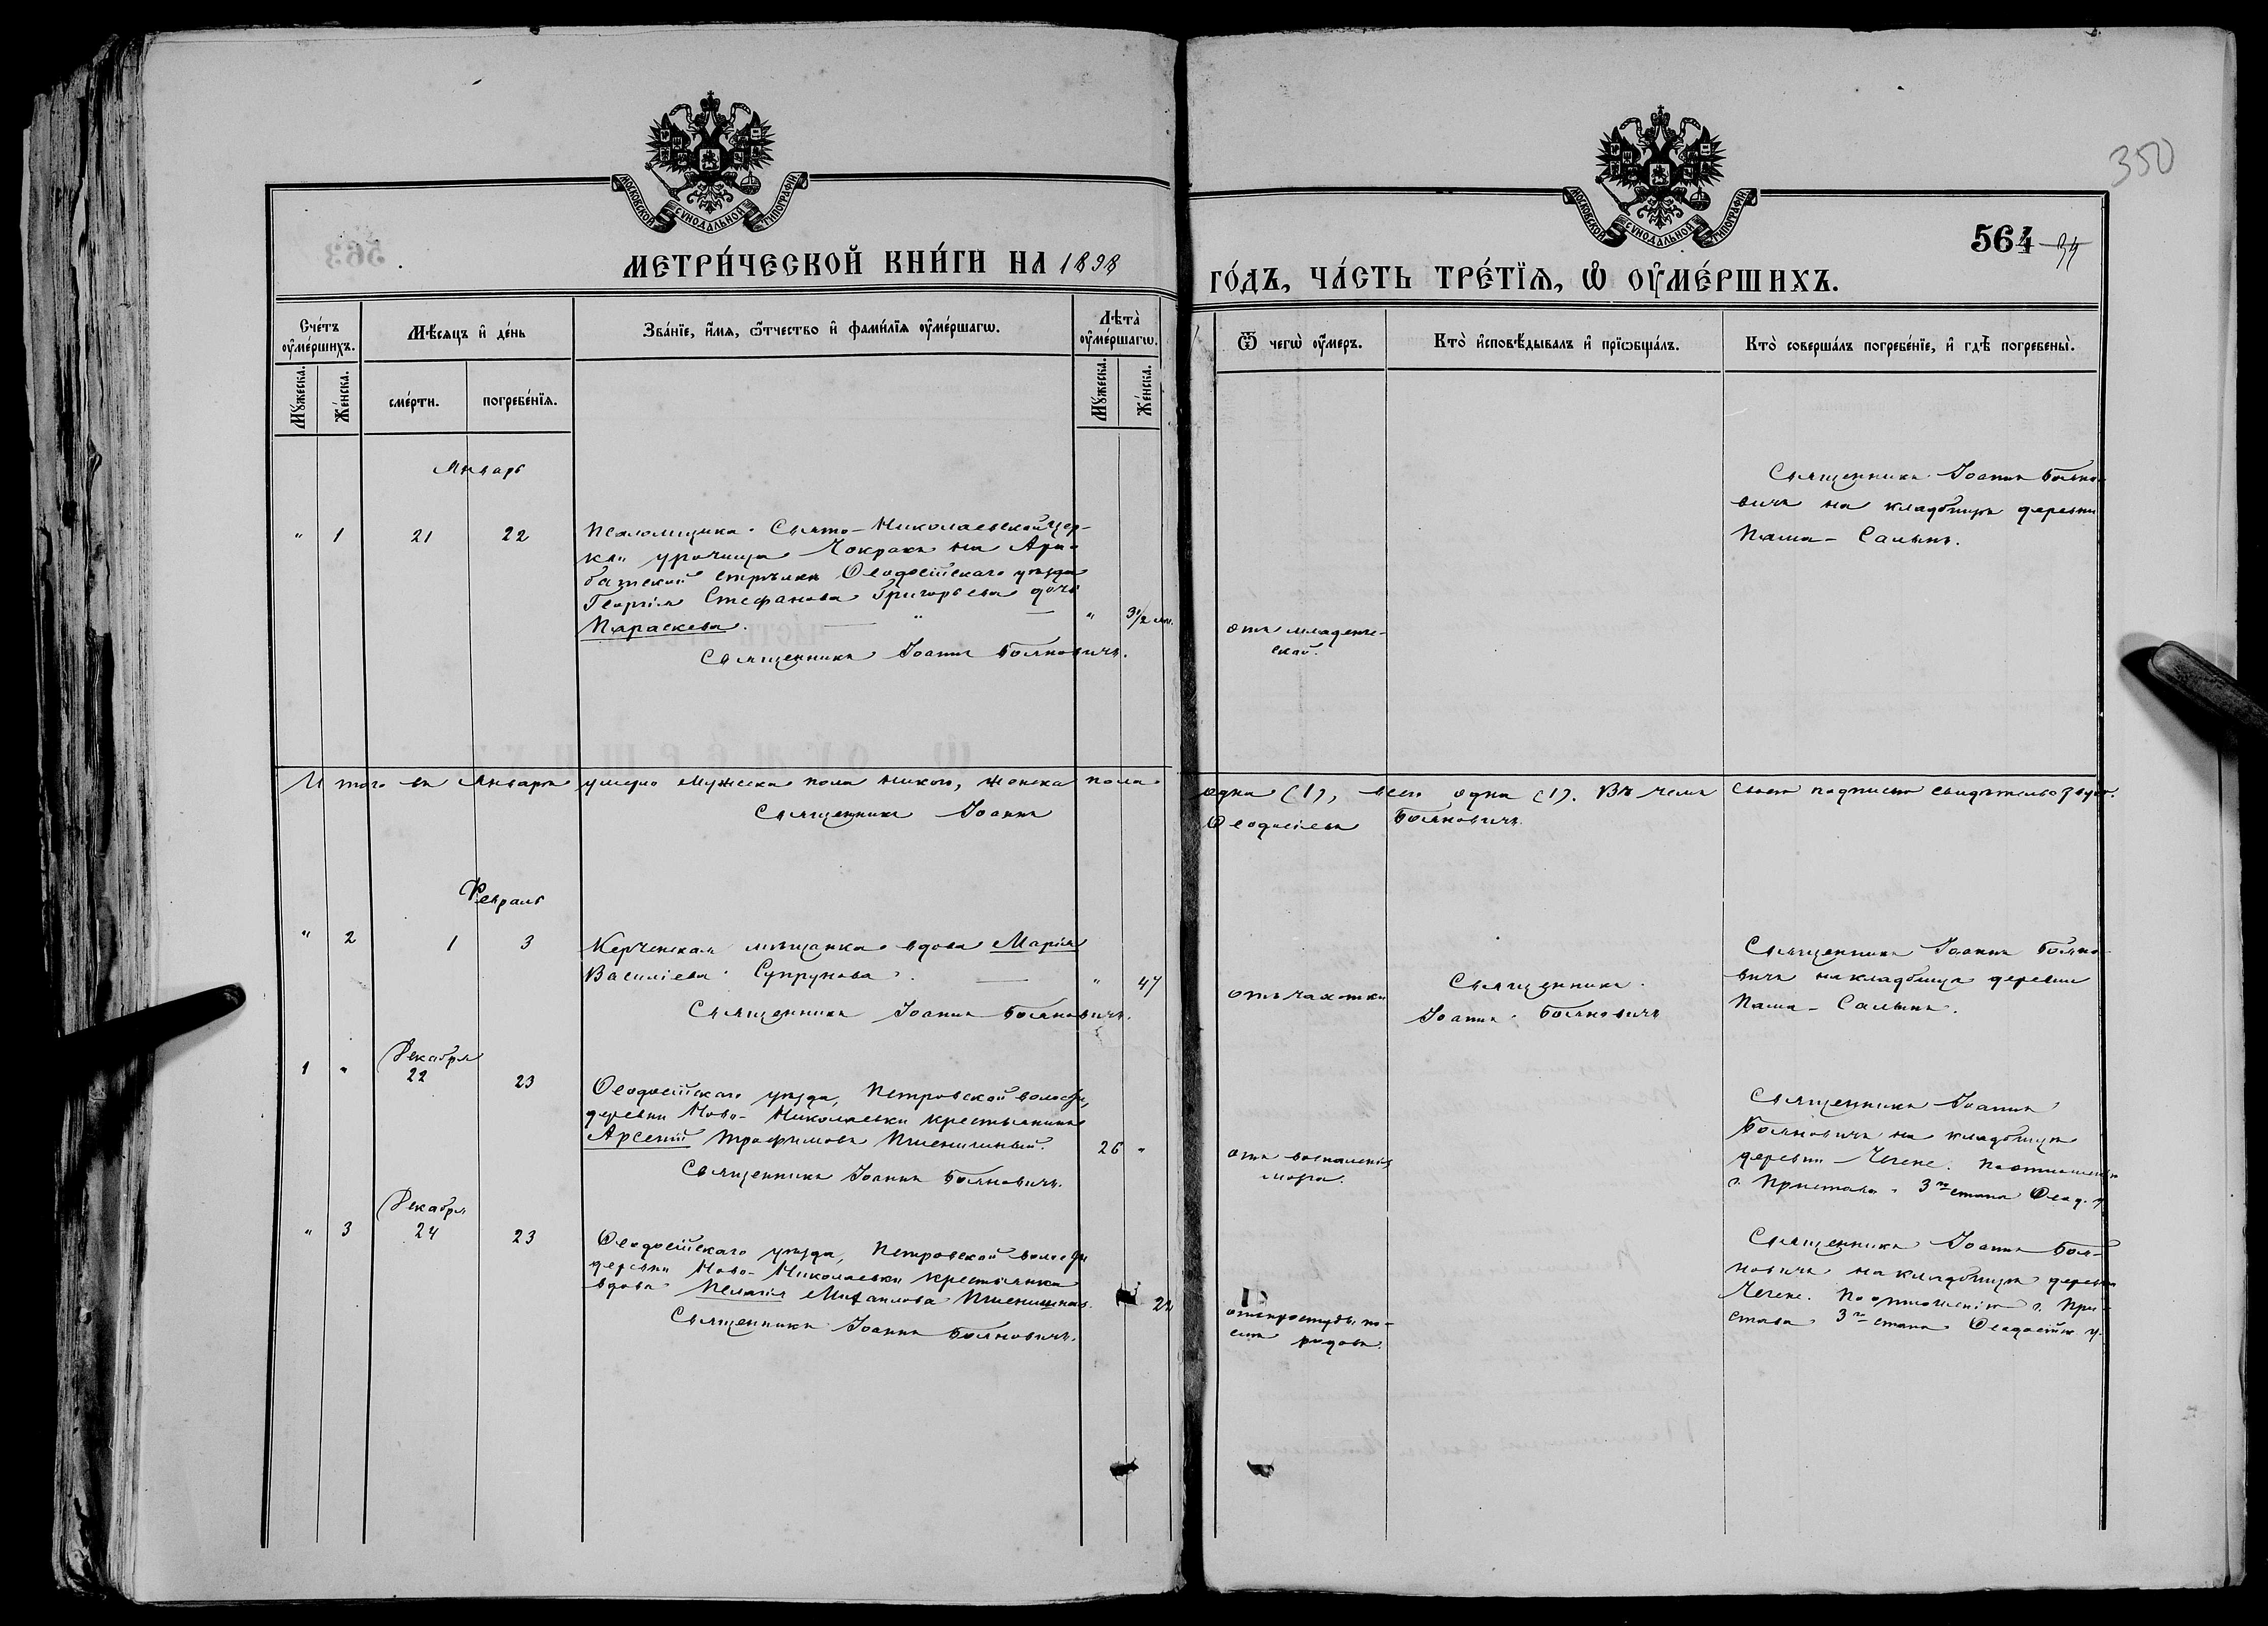 350
МОСКОВСКОЙ СѴНОДАЛЬНОЙ ТИПОГРАФІИ
МОСКОВСКОЙ СѴНОДАЛЬНОЙ ТИПОГРАФІИ
564
МЕТРИ́ЧЕСКОЙ КНИ́ГИ НА 1898
ГО́ДЪ, ЧА́СТЬ ТРЕ́ТІЯ, Ѡ ОУМЕ́РШИХЪ.
Сче́тъ оуме́ршихъ.
Мꙋ́жеска.
Же́нска.
Мѣ́сяцъ и де́нь
сме́рти.
погребе́нїя.
Зва́нїе, и́мя, ѻ́тчество и фами́лїя оуме́ршагѡ.
Лѣта̀ оуме́ршагѡ.
Мꙋ́жеска.
Же́нска.
Ѿ чегѡ̀ оу́меръ.
Кто̀ исповѣ́дывалъ и прїѡбща́лъ.
Кто̀ соверша́лъ погребе́нїе, и гдѣ̀ погребены̀.
Январь
" 1 21 22
Псаломщика Свято-Николаевской цер-
кви урочища Чокракъ на Ара-
батской стрѣлкѣ Ѳеодосійскаго уѣзда
Георгія Стефанова Григорьева дочь
Параскева. " 3½ м.
Священникъ Іоаннъ Бояновичъ.
отъ младенче-
ской.
Священникъ Іоаннъ Бояно-
вичъ на кладбищѣ деревни
Паша-Салынъ.
Итого въ Январѣ умерло мужеска пола никого, женска пола
одна (1), всего одна (1). Въ чемъ своею подписью свидѣтельствую.
Священникъ Іоаннъ
Ѳеодосіевъ Бояновичъ
Февраль
" 2 1 3
Керченская мѣщанка вдова Марія
Василіева Супрунова. " 47
Священникъ Іоаннъ Бояновичъ.
отъ чахотки
Священникъ
Іоаннъ Бояновичъ
Священникъ Іоаннъ Бояно-
вичъ на кладбищѣ деревни
Паша-Салынъ.
Декабря
1 " 22 23
Ѳеодосійскаго уѣзда, Петровской волости,
деревни Ново-Николаевки крестьянинъ
Арсеній Трофимовъ Пшеничный. 26 "
Священникъ Іоаннъ Бояновичъ.
отъ воспаленія
мозга.
Священникъ Іоаннъ
Бояновичъ на кладбищѣ
деревни Чегене. По отношенію
г. Пристава 3го стана Ѳеод. у.
Декабря
" 3 24 23
Ѳеодосійскаго уѣзда, Петровской волости
деревни Ново-Николаевки крестьянка
вдова Пелагія Михаилова Пшенишная. 22
Священникъ Іоаннъ Бояновичъ.
отъ простуды по-
слѣ родовъ.
Священникъ Іоаннъ Боя-
новичъ на кладбищѣ деревни
Чегене. По отношенію г. При-
става 3го стана Ѳеодосійск. у.